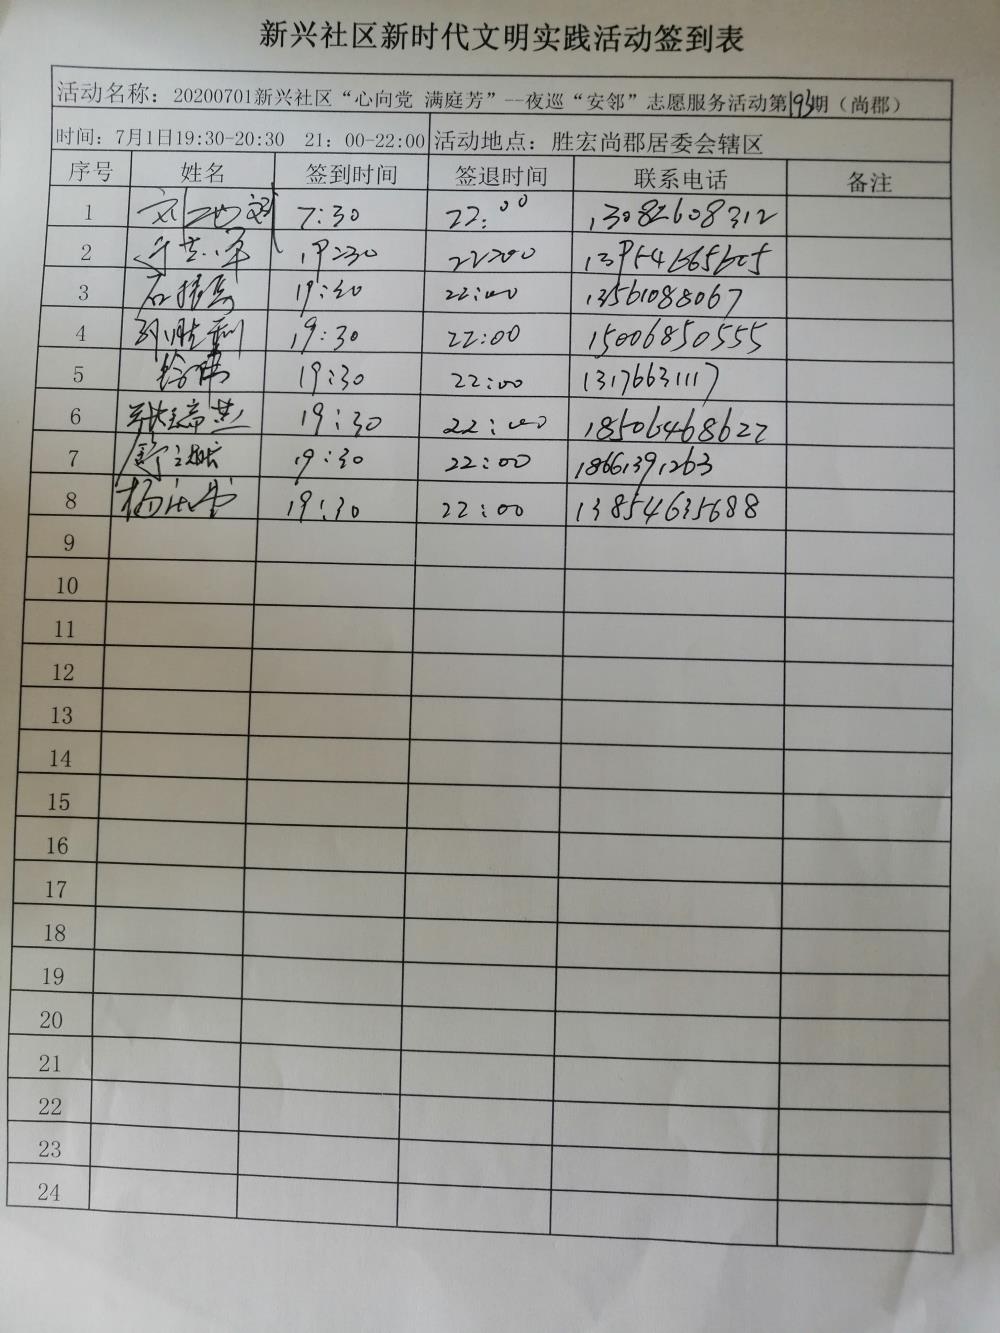 新兴社区新时代文明实践活动签到表
活动名称：20200701新兴社区“心向党 满庭芳”--夜巡“安邻”志愿服务活动第193期（尚郡）
时间：7月1日19:30-20:30 21：00-22:00 活动地点：胜宏尚郡居委会辖区
序号 姓名 签到时间 签退时间 联系电话 备注
1 7:30 22:00 13082608312
2 19:30 22:00
3 19:30 22:00 13561088067
4 孙胜利 19:30 22:00 15006850555
5 徐伟 19:30 22:00 13176631117
6 19:30 22:00 18506468622
7 19:30 22:00 18661391263
8 19:30 22:00 13854635688
9
10
11
12
13
14
15
16
17
18
19
20
21
22
23
24